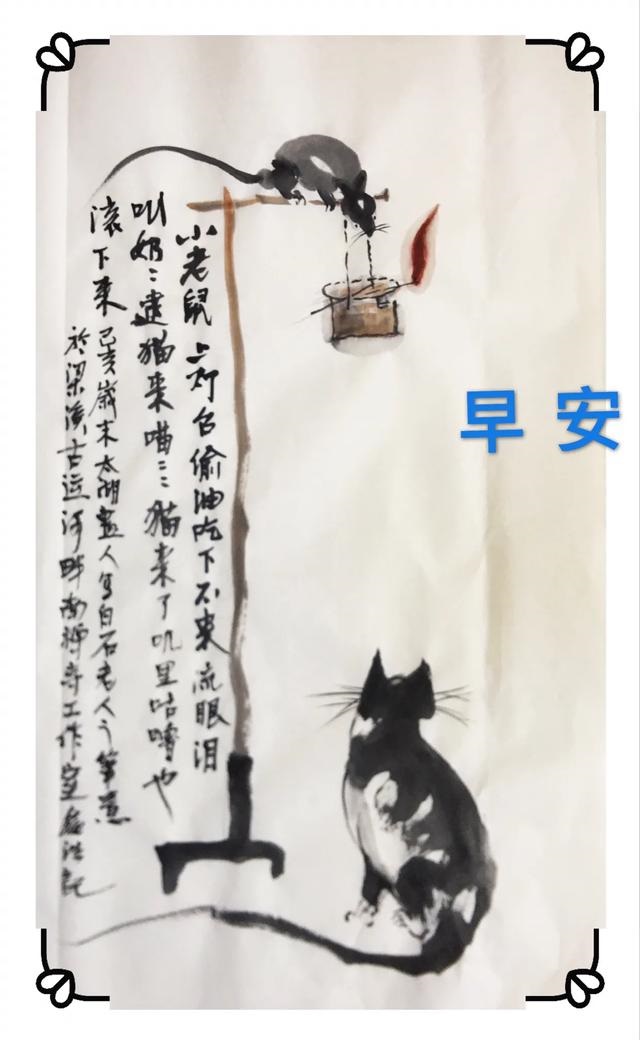 小老鼠上灯台偷油吃下不来流眼泪
叫奶〻逮猫来喵〻〻猫来了叽里咕噜也
滚下来己亥歲末太湖人写白石老人之筆意
於梁溪古运河畔南禅寺工作室記
早安